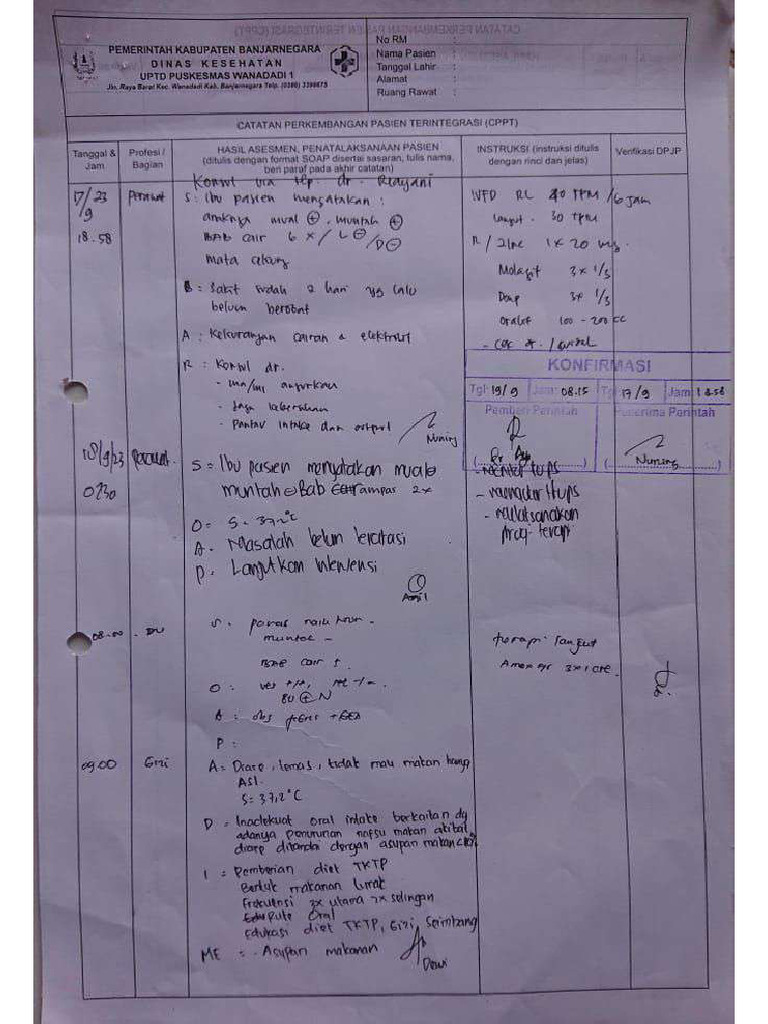 PEMERINTAH KABUPATEN BANJARNEGARA
DINAS KESEHATAN
UPTD PUSKESMAS WANADADI 1
Jln. Raya Barat Kec. Wanadadi Kab. Banjarnegara Telp. (0286) 3398675
No RM
Nama Pasien :
Tanggal Lahir :
Alamat :
Ruang Rawat :
CATATAN PERKEMBANGAN PASIEN TERINTEGRASI (CPPT)
Tanggal & Jam
Profesi / Bagian
HASIL ASESMEN, PENATALAKSANAAN PASIEN
(ditulis dengan format SOAP disertai sasaran, tulis nama,
beri paraf pada akhir catatan)
INSTRUKSI (instruksi ditulis
dengan rinci dan jelas)
Verifikasi DPJP
17/9 23
18.58
Perawat
Konsul via tlp. dr.
S : Ibu pasien mengatakan :
anaknya mual ⊕, muntah ⊕
BAB cair 6 x / L ⊖ / D ⊖
mata cekung
B : Sakit sudah 2 hari yg lalu
belum berobat
A : Kekurangan cairan & elektrolit
R : Konsul dr.
- jaga kebersihan
- Pantau intake dan output
Nuning
IVFD RL 40 TPM / 6 jam
Lanjut . 30 TPM
R / Zinc 1 x 20 mg.
Molagit 3 x 1/3
3 x 1/3
Oralit 100 - 200 cc
KONFIRMASI
Tgl: 19/9 Jam: 08.15 Tgl: 17/9 Jam 18.58
Pemberi Perintah Penerima Perintah
Nuning
18/9/23
0730
Perawat
S = Ibu pasien menyatakan mual
muntah ⊖ Bab ampas 2x
O = S = 37,2°C
A. Masalah belum teratasi
P. Lanjutkan Intervensi
- monitor ttps
- memonitor ttps
- melaksanakan
terapi
08.00
S :
muntah -
BAB cair
O :
BU ⊕ N
A : obs
P :
terapi lanjut
09.00
Gizi
A = Diare, lemas, tidak mau makan hanya
ASI.
S = 37,2°C
D = Inadekuat oral intake berkaitan dg
adanya penurunan nafsu makan akibat
diare ditandai dengan asupan makan
I = Pemberian diet TKTP
Bentuk makanan lunak
Frekuensi 3x utama 2x selingan
Rute Oral
Edukasi diet TKTP, Gizi Seimbang
ME = - Asupan makanan
Dewi